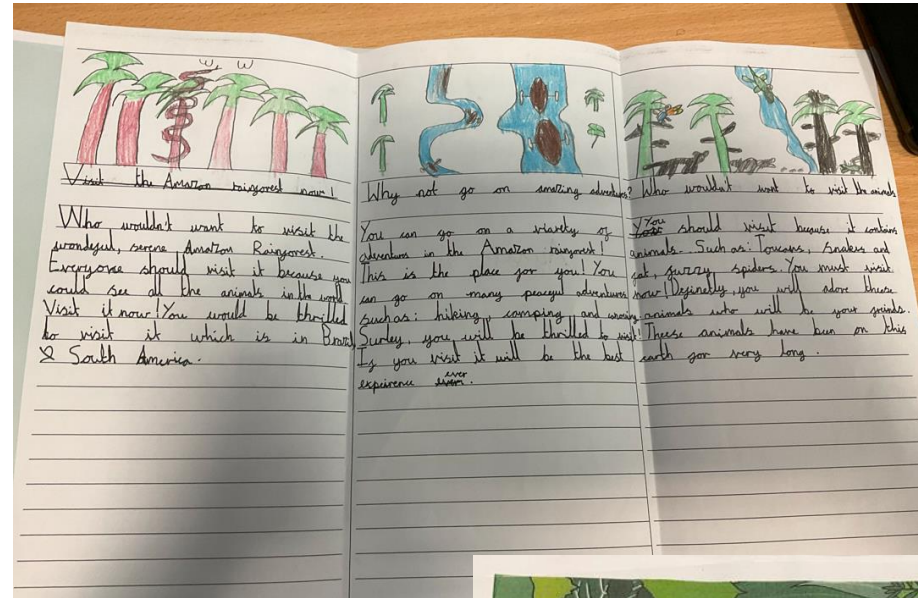 Visit the Amazon rainforest now!
Who wouldn't want to visit the
wondeful, serene Amazon Rainforest.
Everyone should visit it because you
could see all the animals in the world
Visit it now! You would be thrilled
to visit it which is in Brazil
& South America.
Why not go on amazing adventures?
You can go on a viarety of
adventures in the Amazon rainforest!
This is the place for you! You
can go on many peaceful adventures
such as: hiking, camping and
Surley, you will be thrilled to visit!
If you visit it will be the best
expeirence ever.
Who wouldn't want to visit the animals
You should visit because it contains
animals. Such as: Toucans, snakes and
fat, fuzzy spiders. You must visit
now! Definetly, you will adore these
animals who will be your friends.
These animals have been on this
earth for very long.